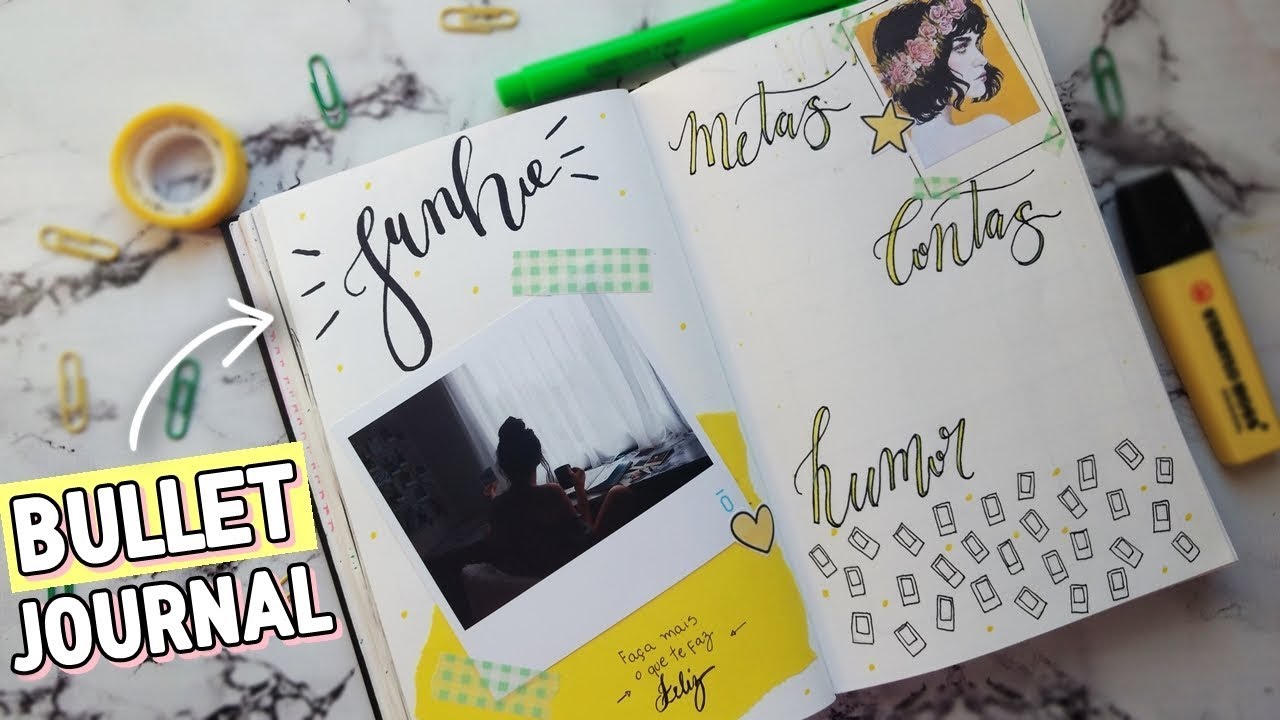 Junho
Metas
Contas
humor
Faça mais
o que te faz
feliz
BULLET
JOURNAL